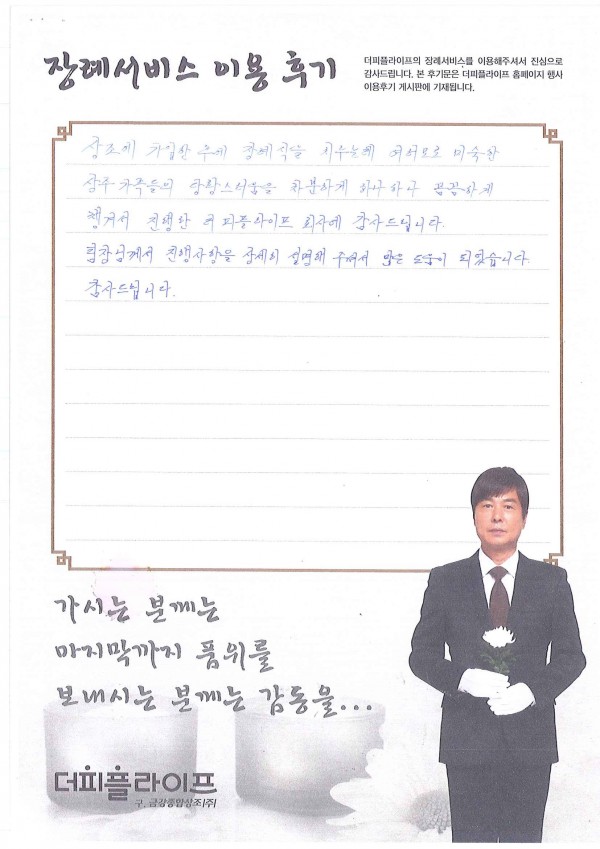 장례서비스 이용 후기
더피플라이프의 장례서비스를 이용해주셔서 진심으로
감사드립니다. 본 후기문은 더피플라이프 홈페이지 행사
이용후기 게시판에 기재됩니다.
상조에 가입한 후에 장례식을 치루는데 여러모로 미숙한
상주 가족들의 당황스러움을 차분하게 하나하나 꼼꼼하게
챙겨서 진행한 더피플라이프 회사에 감사드립니다.
팀장님께서 진행사항을 상세히 설명해 주셔서 많은 도움이 되었습니다.
감사드립니다.
가시는 분께는
마지막까지 품위를
보내시는 분께는 감동을...
더피플라이프
구, 금강종합상조(주)